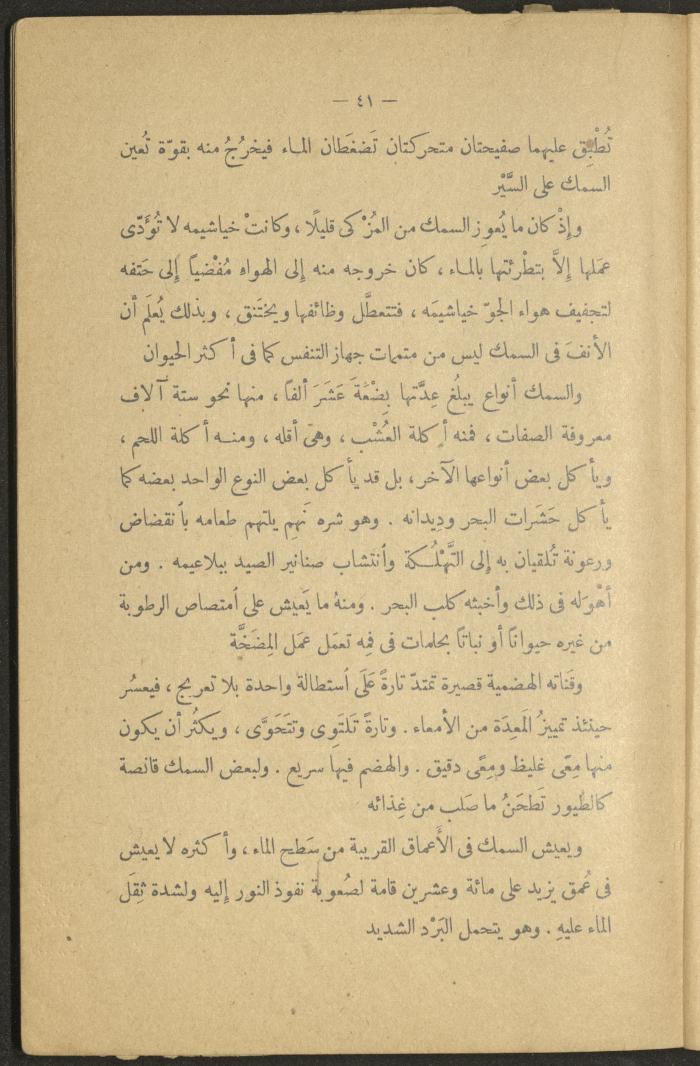 — ٤١ —
تُطْبِق عليهما صفيحتان متحركتان تَضغَطان الماء فيخرُجُ منه بقوّة تُعين
السمك على السَّيْر
وإِذْ كان ما يُعوِز السمك من المُزْكى قليلًا ، وكانتْ خياشيمه لا تُؤَدّى
عمَلها إِلاَّ بتطْرئتها بالماء ، كان خروجه منه إِلى الهواء مُفْضيًا إِلى حَتفه
لتجفيف هواء الجوّ خياشيمَه ، فتتعطَّل وظائفها ويختَنق ، وبذلك يُعلَم أن
الأنفَ فى السمك ليس من متممات جهاز التنفس كما فى أكثر الحيوان
والسمك أنواع يبلُغ عِدَّتها بِضْعَةَ عَشَرَ ألفًا ، منها نحو ستة آلاف
معروفة الصفات ، فمنه أكلة العُشْب ، وهى أقله ، ومنه أكلة اللحم ،
ويأكل بعض أنواعها الآخر ، بل قد يأكل بعض النوع الواحد بعضه كما
يأكل حَشَرات البحر ودِيدانه . وهو شره نَهِم يلتهم طعامه بأنقضاض
ورعونة تُلقيان به إِلى التَّهْلُكة وأنتشاب صنانير الصيد ببلاعيمه . ومن
أهْوَله فى ذلك وأخبثه كلب البحر . ومنهُ ما يَعيش على أمتصاص الرطوبة
من غيره حيوانًا أو نباتًا بحلمات فى فمِه تعمَل عمَل المِضَخَّة
وقَناته الهضمية قصيرة تمتدّ تارةً عَلَى أستطالة واحدة بلا تعريج ، فيعسُر
حينئذ تمييزُ المَعِدَة من الأمعاء . وتارةً تَلتَوِى وتتَحَوَّى ، ويكثُر أن يكون
منها مِعًى غليظ ومِعًى دقيق . والهضم فيها سريع . ولبعض السمك قانصة
كالطيور تَطحَنُ ما صَلب من غِذائه
ويعيش السمك فى الأَعماق القريبة من سَطح الماء ، وأكثره لا يعيش
فى عُمق يزيد على مائة وعشرين قامة لصُعوبة نفوذ النور إِليه ولشدة ثِقَل
الماء عليهِ . وهو يتحمل البَرْد الشديد